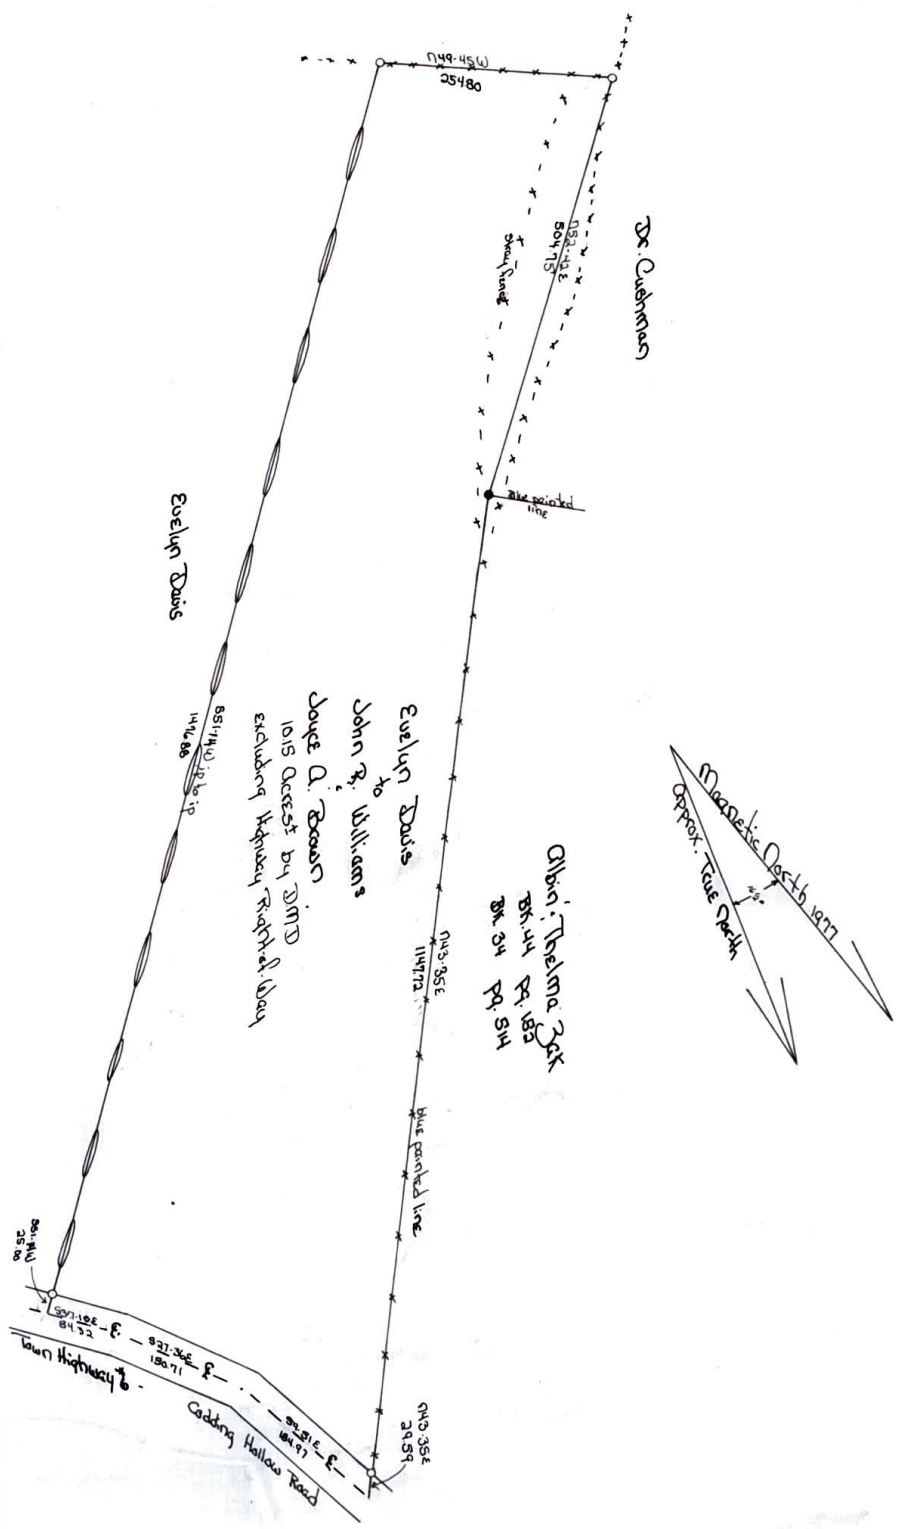 N49-45W
254.80
Dr. Cushman
N52-42E
504.75
stray fence
Blue painted
line
Evelyn Davis
S51-14W ip to ip
1476.88
Evelyn Davis
to
John R. Williams
&
Joyce A. Brown
10.15 Acres± by DMD
excluding Highway Right-of-Way
Albin & Thelma Zak
BK. 44 pg. 182
BK. 34 pg. 514
N43-35E
1147.72
blue painted line
Magnetic North 1977
Approx. True North
S51-14W
25.00
84.32
S27-36E
150.71
S9-51E
184.97
N43-35E
29.59
Town Highway #6
Codding Hollow Road